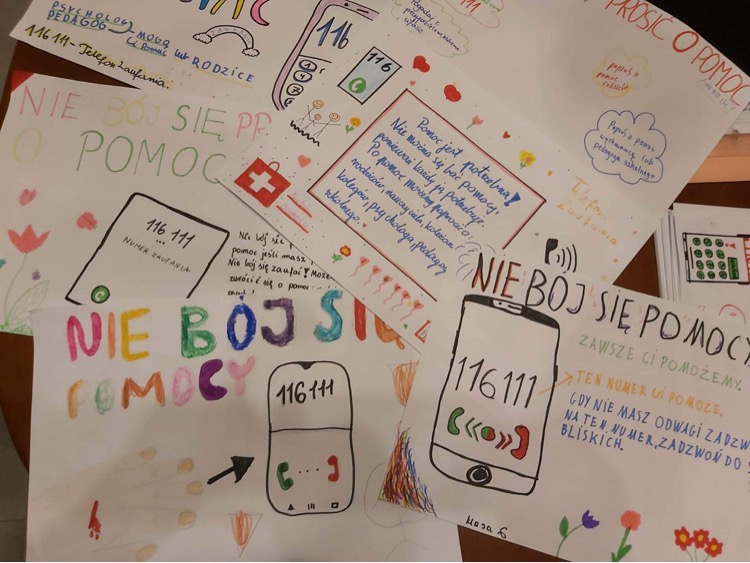 PSYCHOLOG
PEDAGOG MOGĄ
Ci Pomóc lub RODZICE
116 111 - Telefon Zaufania.
116
116
PROSIĆ O POMOC
poproś o
pomoc
Poproś o pomoc
wychowawcę lub
pedagoga szkolnego
NIE BÓJ SIĘ PR
O POMOC
116 111
NUMER ZAUFANIA
Nie bój się
pomoc jeśli masz
Nie bój się zaufać! Może
zwrócić się o pomo
Pomoc jest potrzebna!
Nie można się bać pomocy,
ponieważ każdy ją potrzebuje.
Po pomoc możemy poprosić:
rodziców, nauczycieli, kolezanki
kolegów, psychologa, pedagoga
szkolnego.
Telefon
Zaufania
NIE BÓJ SIĘ
POMOCY
116 111
NIE BÓJ SIĘ POMOCY
ZAWSZE CI POMOŻEMY.
116 111
TEN NUMER CI POMOŻE.
GDY NIE MASZ ODWAGI ZADZW
NA TEN NUMER, ZADZWOŃ DO
BLISKICH.
klasa 6